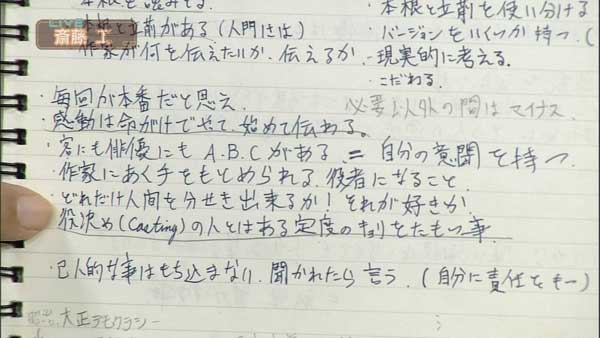 本根と立前を使い分ける
LIVE
斎藤 工
本根と立前がある(人間には)
・バージョンをいくつか持つ。(
作家が何を伝えたいか、伝えるか
・現実的に考える。
・こだわる。
・毎回が本番だと思え。
必要以外の間はマイナス
感動は命がけでやって、始めて伝わる。
・客にも俳優にも A.B.C がある = 自分の意聞を持つ
・作家にあく手をもとめられる役者になること。
・どれだけ人間を分せき出来るか!それが好きか
役決め(Casting)の人とはある定度のキョリをたもつ事
・己人的な事はもち込まない。聞かれたら言う。(自分に責任をもつ)
大正デモクラシー